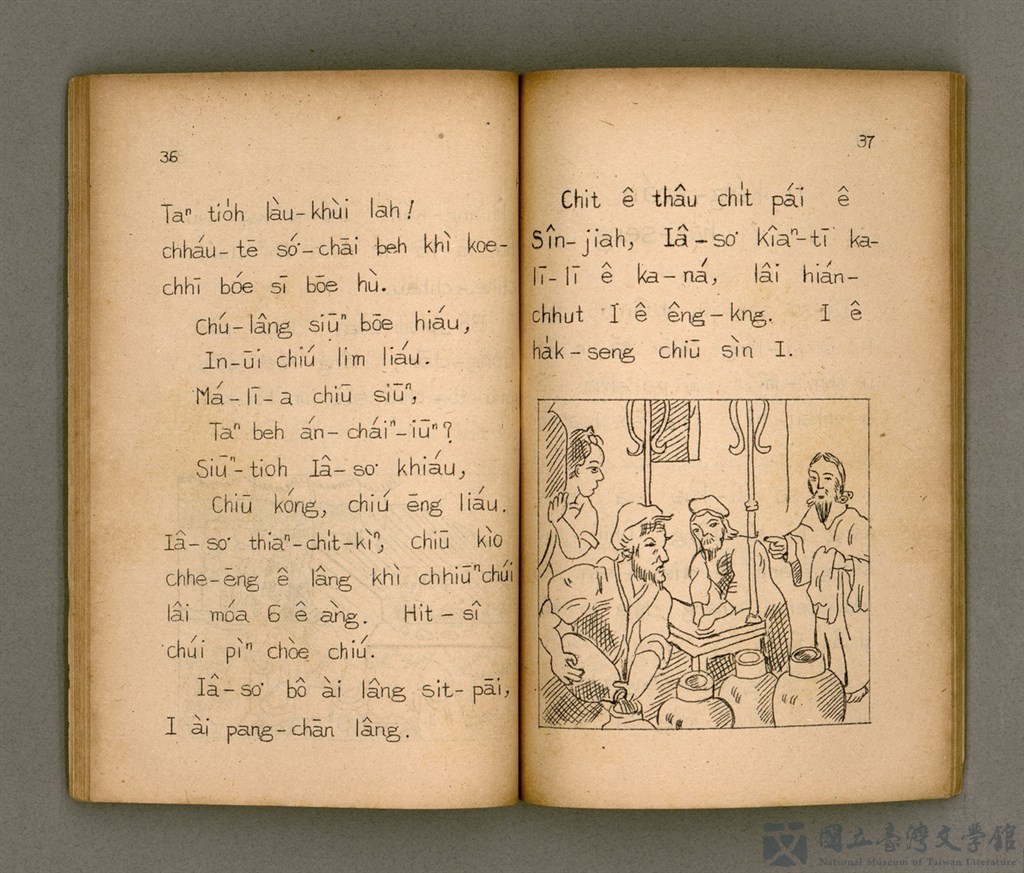 36
Taⁿ tio̍h làu-khùi lah!
chháu-tē só͘-chāi beh khì koe-
chhī bóe sī bōe hù.
Chú-lâng siūⁿ bōe hiáu,
In-ūi chiú lim liáu.
Má-lī-a chiū siūⁿ,
Taⁿ beh án-cháiⁿ-iūⁿ?
Siūⁿ-tioh Iâ-so͘ khiáu,
Chiū kóng, chiú ēng liáu.
Iâ-so͘ thiaⁿ-chi̍t-kìⁿ, chiū kìo
chhe-ēng ê lâng khì chhiūⁿ chúi
lâi móa 6 ê àng. Hit-sî
chúi pìⁿ chòe chiú.
Iâ-so͘ bô ài lâng sit-pāi,
I ài pang-chān lâng.
37
Chit ê thâu chi̍t pái ê
Sîn-jiah, Iâ-so͘ kîaⁿ-tī ka-
lī-lī ê ka-ná, lâi hián-
chhut I ê êng-kng. I ê
ha̍k-seng chiū sìn I.
國立臺灣文學館
National Museum of Taiwan Literature